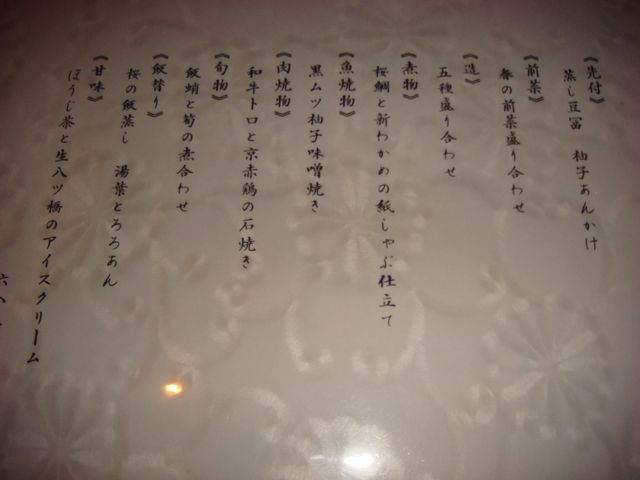 《先付》
蒸し豆冨 柚子あんかけ
《前菜》
春の前菜盛り合わせ
《造》
五種盛り合わせ
《煮物》
桜鯛と新わかめの紙しゃぶ仕立て
《魚焼物》
黒ムツ柚子味噌焼き
《肉焼物》
和牛トロと京赤鶏の石焼き
《旬物》
飯蛸と筍の煮合わせ
《飯替り》
桜の飯蒸し 湯葉とろろあん
《甘味》
ほうじ茶と生八ツ橋のアイスクリーム